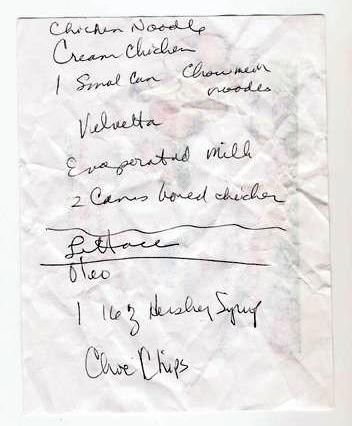 Chicken Noodle
Cream Chicken
1 Small Can Chowmein
noodes
Velvetta
Evaporated Milk
2 Canns boned chicken
Lettace
Oleo
1 16 oz Hershey Syrup
Choc Chips